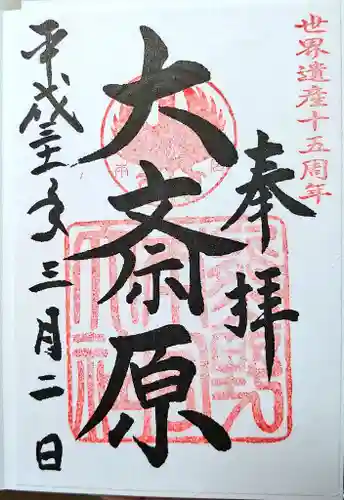 世界遺産十五周年
奉拝
大斎原
平成三十一年三月二日